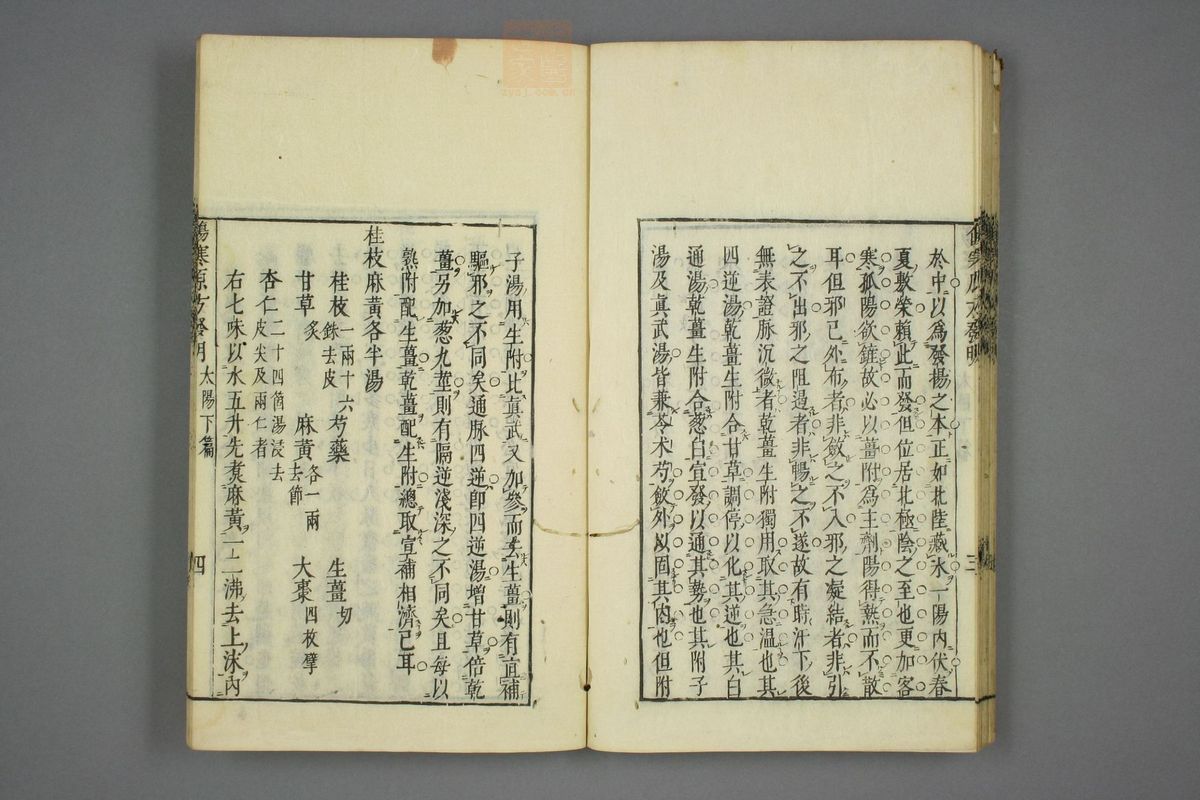 於中以爲發揚之本正如北陸藏冰一陽内伏春
夏敷榮賴此而發但位居北極陰之至也更加客
寒孤陽欲鏟故必以薑附爲主劑陽得熱而不散
耳但邪已外布者非斂之不入邪之凝結者非引
之不出邪之阻遏者非暢之不遂故有時汗下後
無表證脉沉微者乾薑生附獨用取其急溫也其
四逆湯乾薑生附合甘草調停以化其逆也其白
通湯乾薑生附合葱白宣發以通其勢也其附子
湯及眞武湯皆兼苓术芍斂外以固其内也但附
三
子湯用生附比眞武又加參而去生薑則有宜補
驅邪之不同矣通脉四逆卽四逆湯增甘草倍乾
薑另加葱九莖則有隔逆淺深之不同矣且每以
熟附配生薑乾薑配生附總取宣補相濟已耳
桂枝麻黃各半湯
桂枝一兩十六銖去皮 芍藥 生薑切
甘草炙 麻黃各一兩去節 大棗四枚擘
杏仁二十四箇湯浸去皮尖及兩仁者
右七味以水五升先煑麻黃一二沸去上沫内
傷寒原方發明 太陽下篇 四
zysj.com.cn